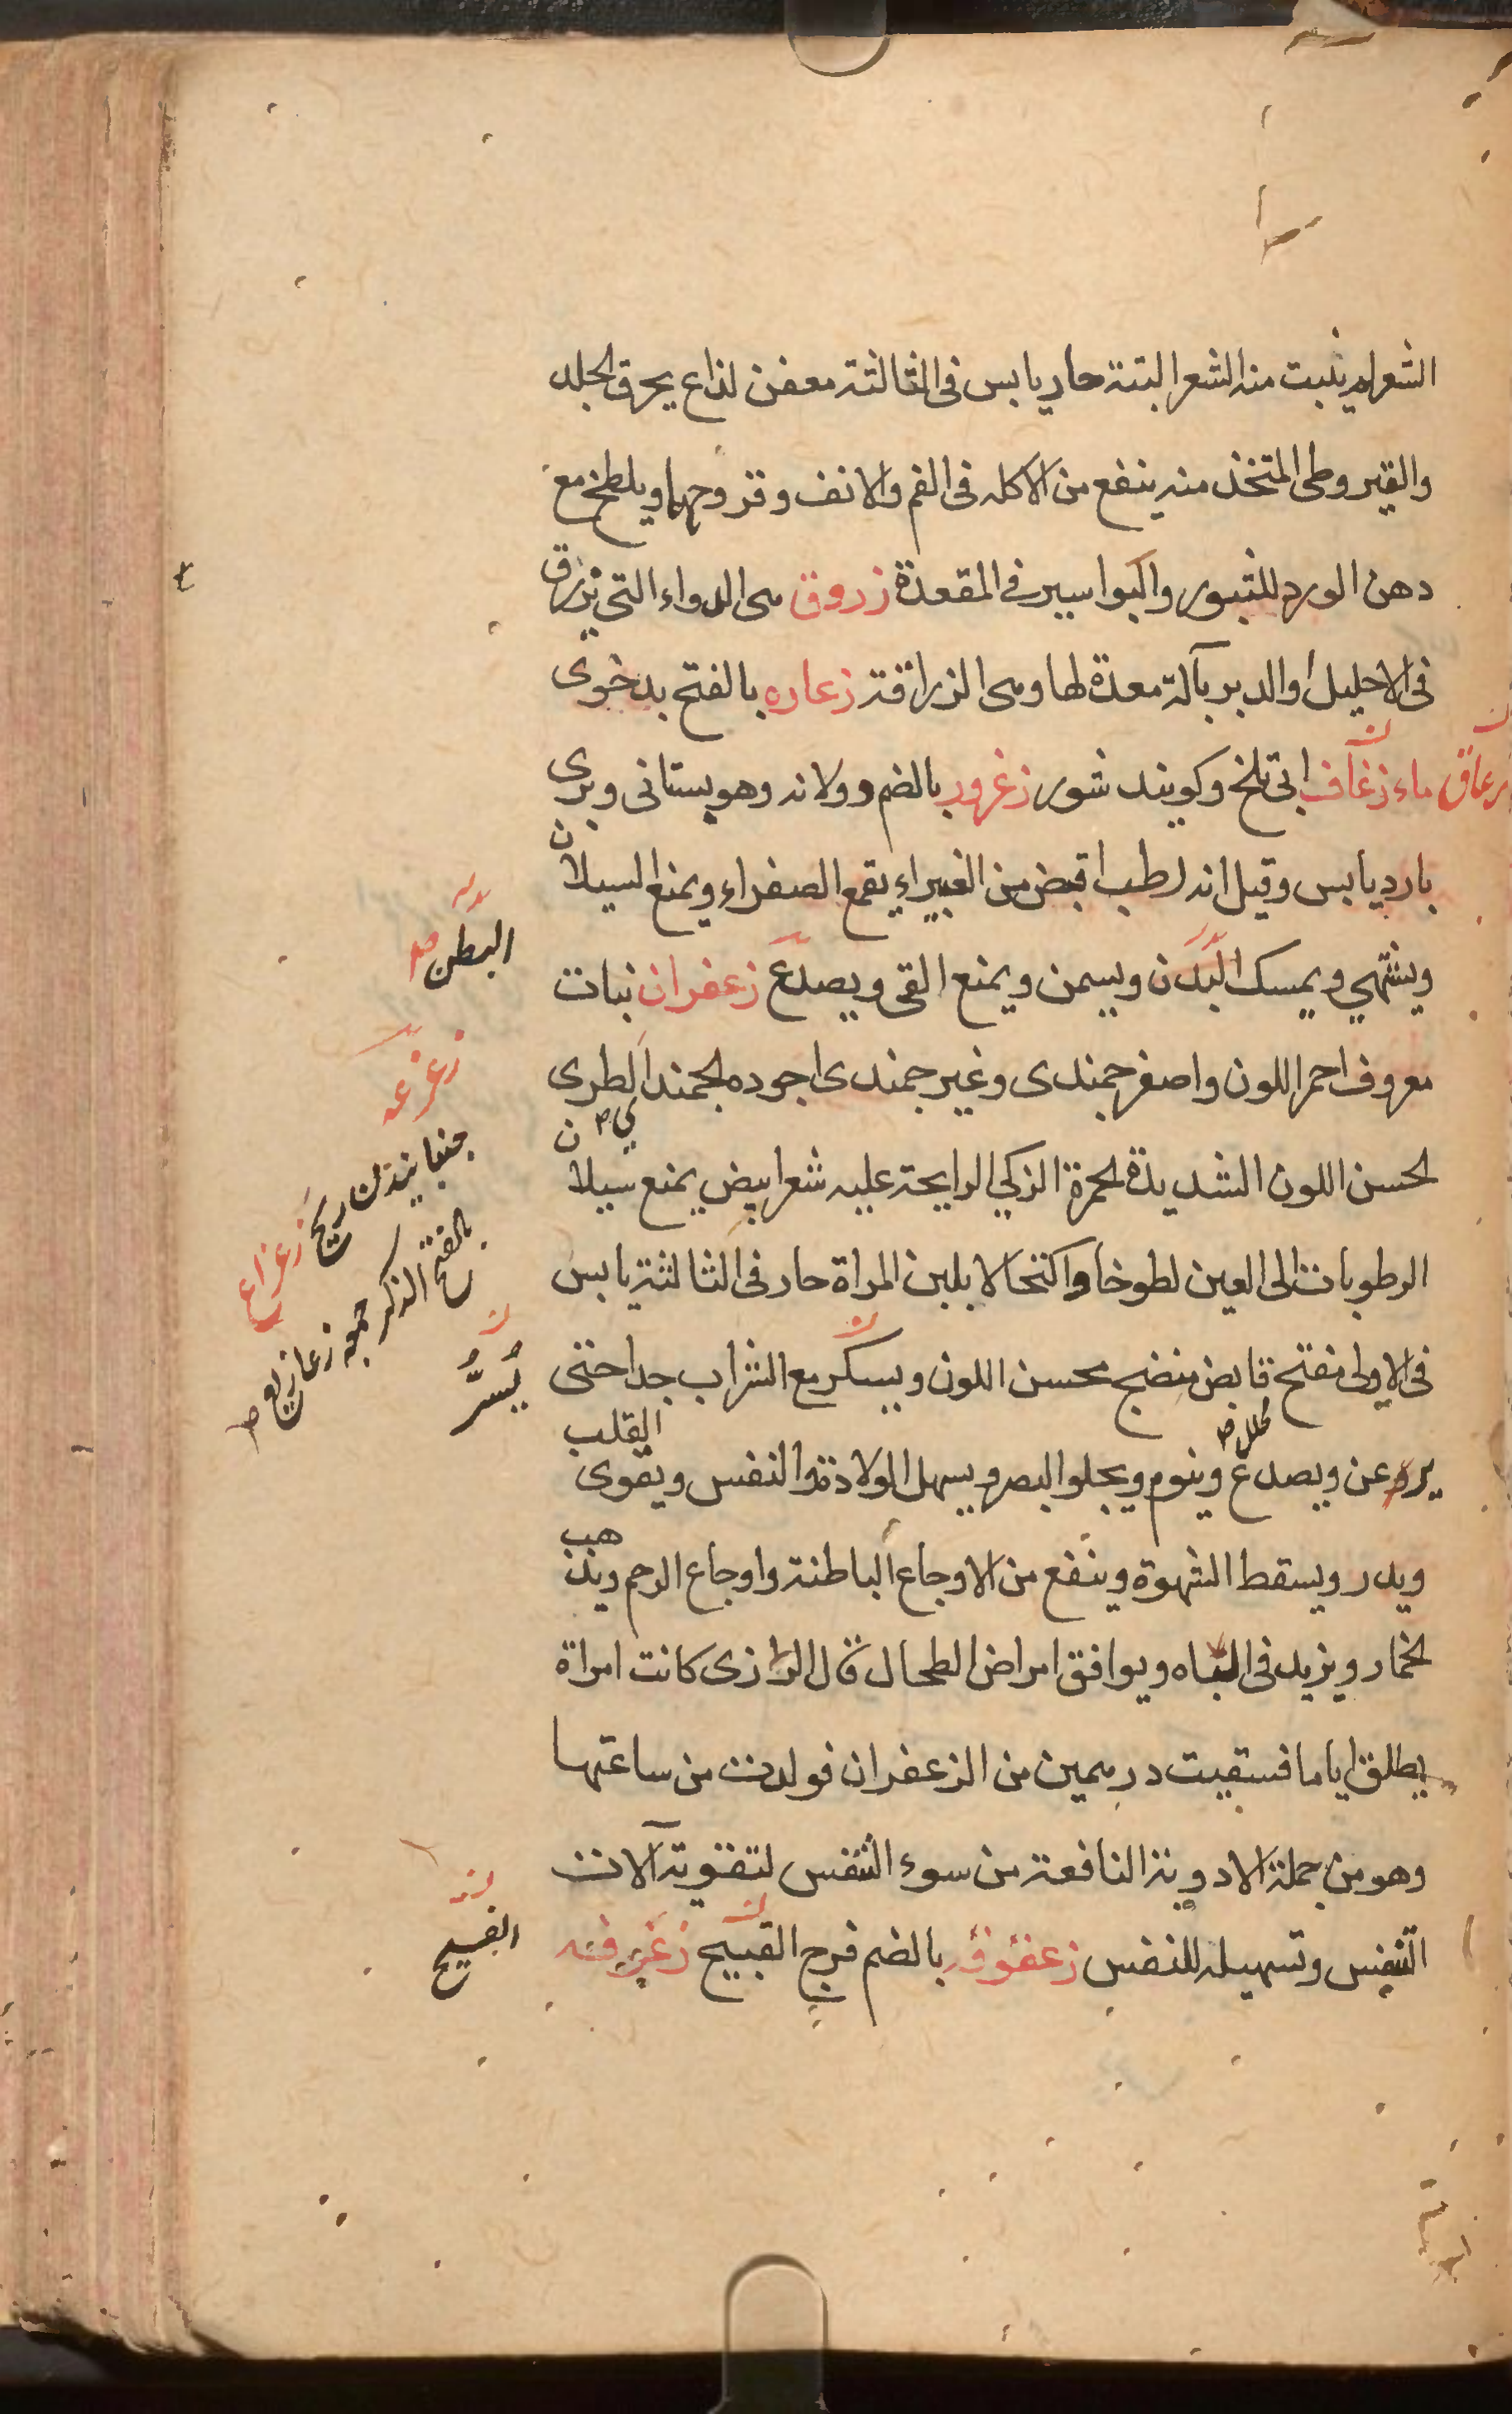 الشعر لم ينبت منه الشعر البتة حار يابس فى الثالثة معفن لذاع يحرق الجلد
والقيروطى المتخذ منه ينفع من الاكله فى الفم والانف وقروحهما ويلطخ مع
دهن الورد للتبور والبواسير فى المقعدة زروق هى الدواء التى يزرق
فى الاحليل او الدبر بآلة معدة لها وهى الزراقة زعاره بالفتح بدخوى
ماء زعاق ابى تلخ وكويند شور زعرور بالضم وولانه وهو بستانى وبرى
بارد يابس وقيل انه لطب اقبض من الغبيراء يقمع الصفراء ويمنع السيلان
ويشهي ويمسك البدن ويسمن ويمنع القى ويصدع زعفران نبات
معروف احمر اللون واصفر جمندى وغير جمندى اجوده الجمند الطرى
الحسن اللون الشديدة الحمرة الزكي الرايحة عليه شعر ابيض يمنع سيلان
الرطوبات الى العين لطوخا واكتحالا بلبن المراة حار فى الثالثة يابس
فى الاولى مفتح قابض منضج محسن اللون ويسكر مع الشراب جدا حتى
يرعن ويصدع وينوم ويجلو البصر ويسهل الولادة والنفس ويقوى القلب
ويدر ويسقط الشهوة وينفع من الاوجاع الباطنة واوجاع الرحم ويذهب
الخمار ويزيد فى الباه ويوافق امراض الطحال قال الرازى كانت امراة
يطلق اياما فسقيت درهمين من الزعفران فولدت من ساعتها
وهو من جملة الادوية النافعة من سوء التنفس لتقوية آلات
التنفس وتسهيله للنفس زعفوفه بالضم فرج القبيح زغرفه
زعاق
البطن صح
زعزعه
جنبانيدن ريح زعزاع
بالفتح الذكر جمعه زعازيع
يسر
القبيح